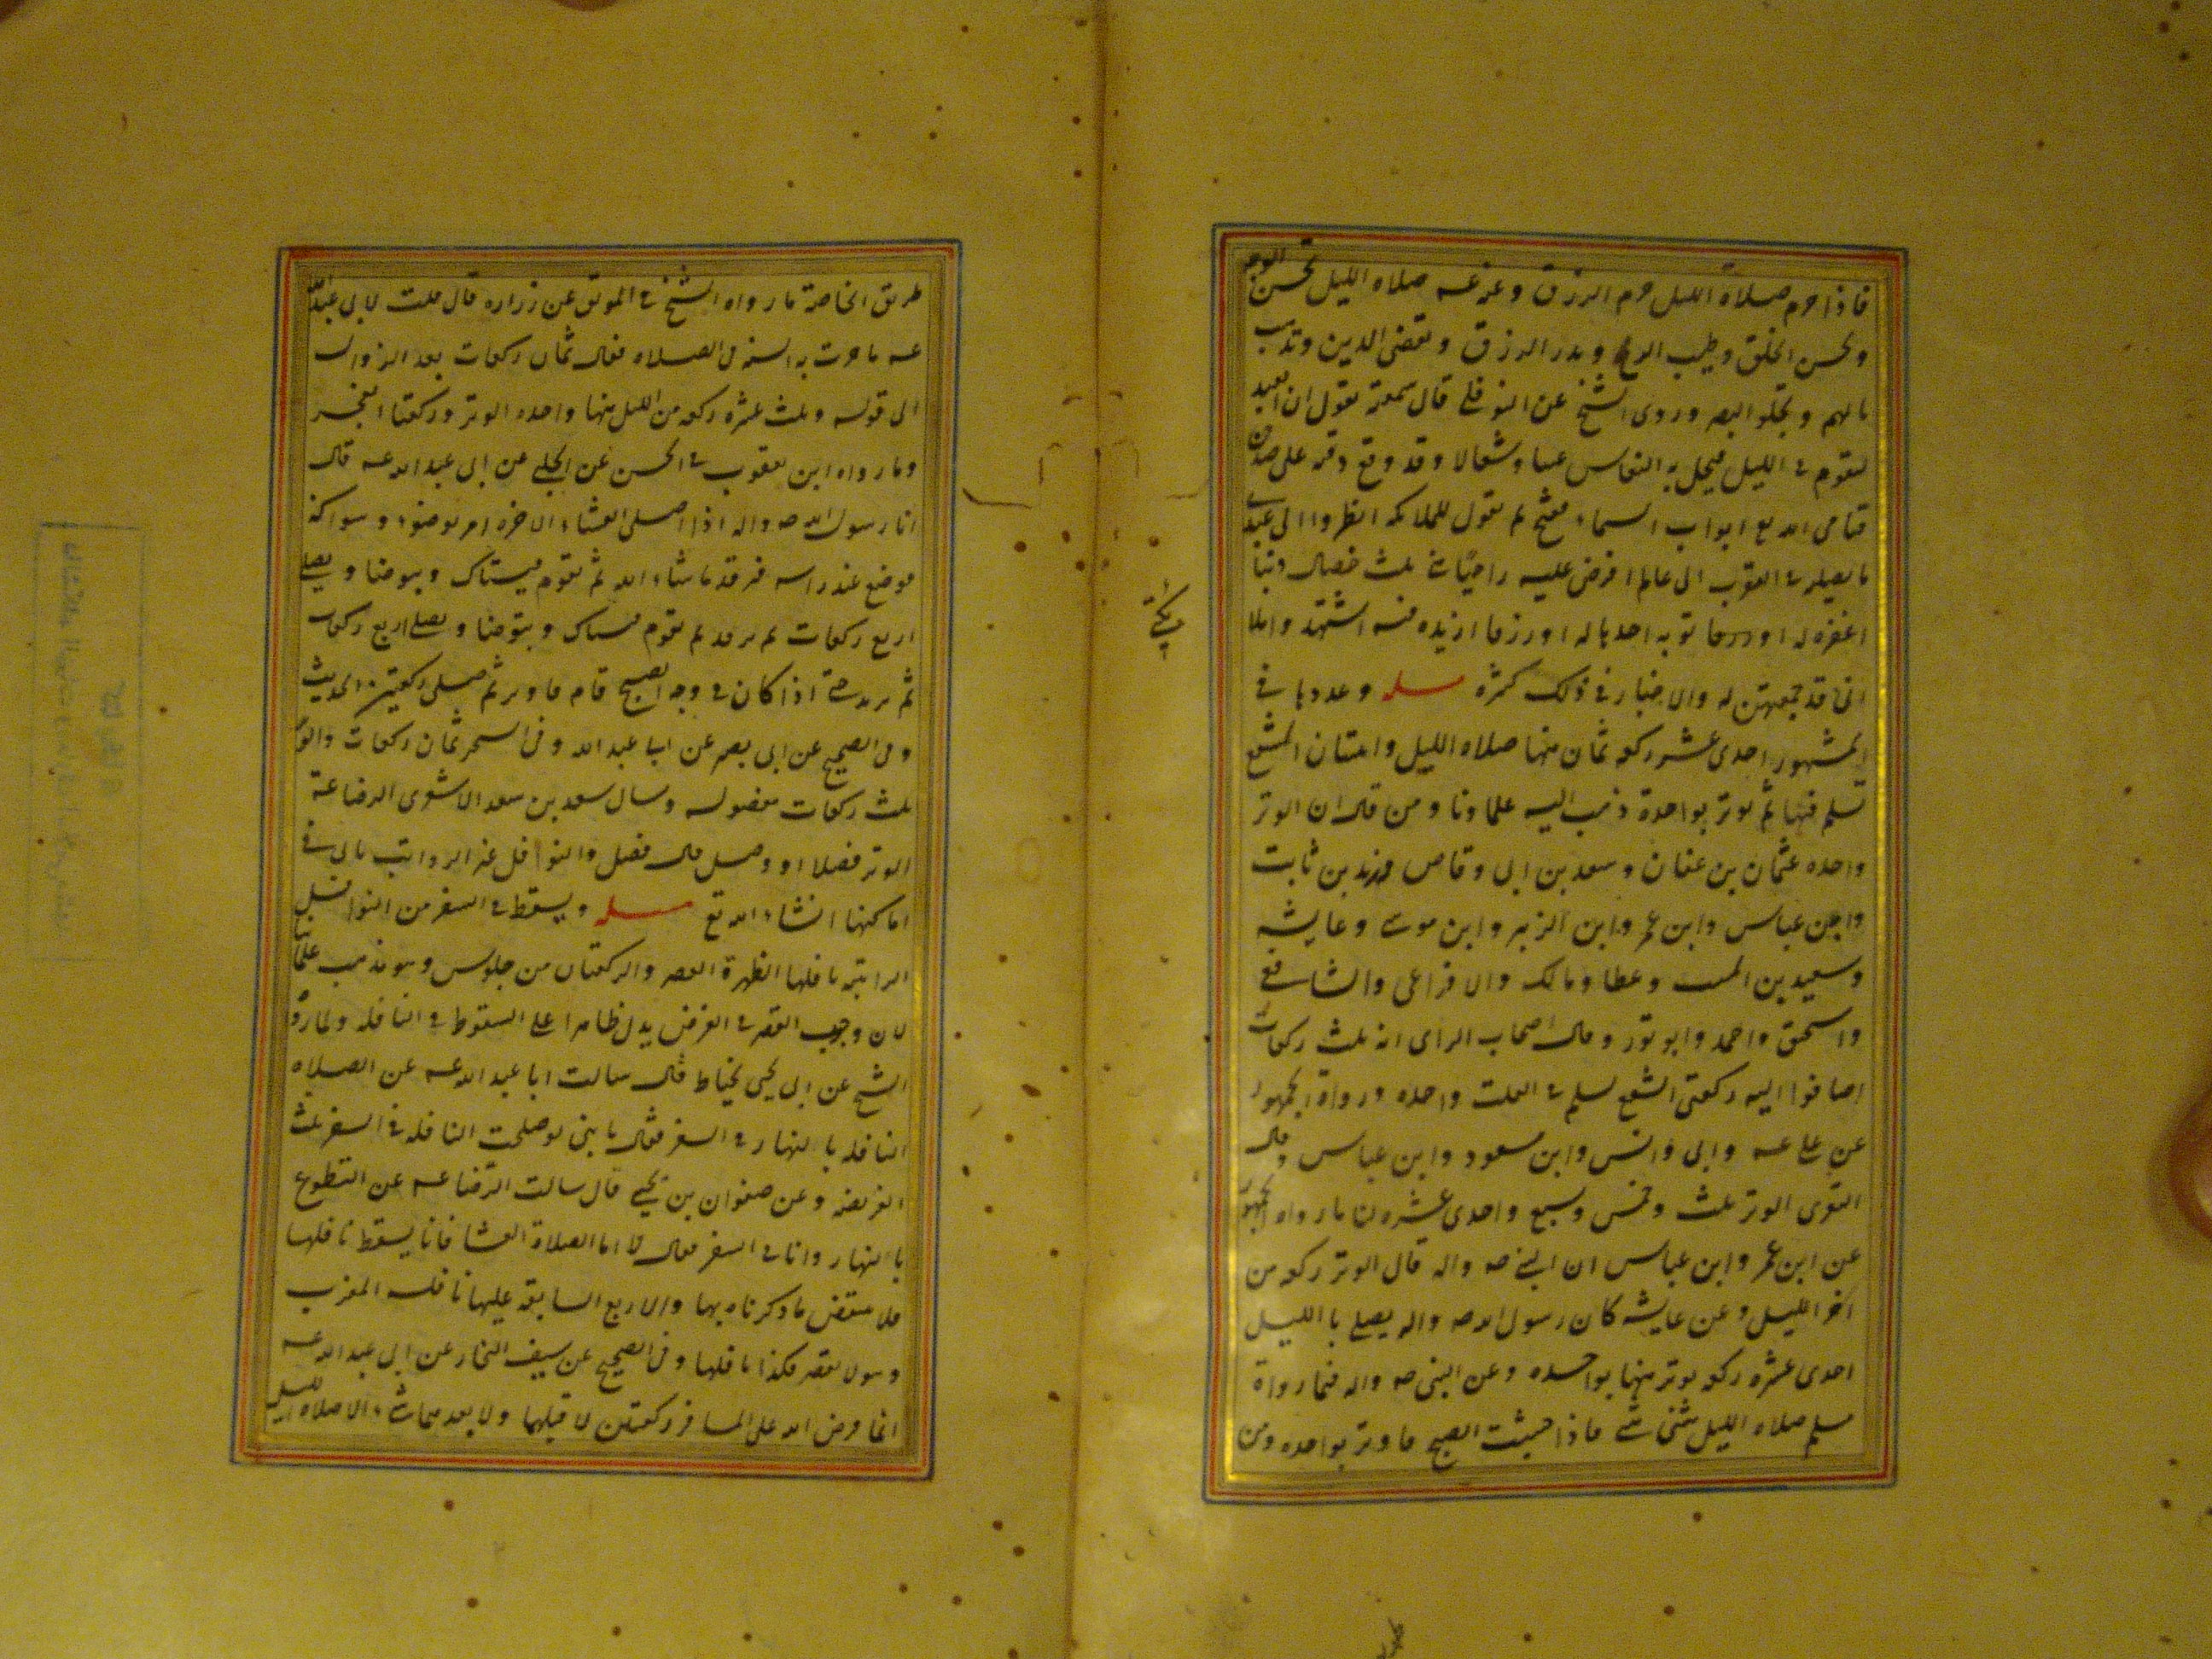 فاذا حرم صلاة الليل حرم الرزق وعنه عه صلاه الليل تحسن الوجه
وتحسن الخلق وتطيب الريح وتدر الرزق وتقضى الدين وتذهب
بالهم وتجلو البصر وروى الشيخ عن النوفلى قال سمعته يقول ان العبد
ليقوم فى الليل فيميل به النعاس يمينا وشمالا وقد وقع ذقنه على صدره
فيامر الله تع ابواب السماء فتفتح ثم يقول للملائكه انظروا الى عبدى
ما يصيبه فى التقرب الى بما لم افرض عليه راجيا منى ثلث خصال ذنبا
اغفره له او توبه اجددها له او رزقا ازيده فيه اشهدوا ملا
انى قد جمعتهن له والاخبار فى ذلك كثره مسله وعددها فى
المشهور احدى عشر ركعه ثمان منها صلاه الليل واثنتان للشفع
تسلم فيها ثم يوتر بواحدة ذهب اليه علماونا ومن قال ان الوتر
واحده عثمان بن عفان وسعد بن ابى وقاص وزيد بن ثابت
وابن عباس وابن عمر وابن الزبير وابن موسى وعايشه
وسعيد بن المسيب وعطا ومالك والاوزاعى والشافعى
واسحق واحمد وابو ثور وقال اصحاب الراى انه ثلث ركعات
اضافوا اليه ركعتى الشفع تسلم فى الثلث واحده ورواة الجمهور
عن على عه وابى وانس وابن مسعود وابن عباس وقال
الثورى الوتر ثلث وخمس وسبع واحدى عشره لنا ما رواه الجمهور
عن ابن عمر وابن عباس ان النبى صه واله قال الوتر ركعه من
آخر الليل وعن عايشه كان رسول الله صه واله يصلى بالليل
احدى عشره ركعه يوتر منها بواحده وعن النبى صه واله فيما رواة
مسلم صلاه الليل مثنى مثنى فاذا خشيت الصبح فاوتر بواحده ومن
طريق الخاصة ما رواه الشيخ فى الموثق عن زراره قال قلت لابى عبد الله
عه ما جرت به السنه فى الصلاه فقال ثمان ركعات بعد الزوال
الى قوله وثلث عشره ركعه من الليل منها واحده الوتر وركعتا الفجر
وما رواه ابن يعقوب فى الحسن عن الحلبى عن ابى عبد الله عه قال
ان رسول الله صه واله اذا صلى العشاء الاخره امر بوضوء وسواكه
فوضع عند راسه فيرقد ما شاء الله ثم يقوم فيستاك ويتوضا ويصلى
اربع ركعات ثم يرقد ثم يقوم فيستاك ويتوضا ويصلى اربع ركعات
ثم يرقد حتى اذا كان فى وجه الصبح قام فاوتر ثم صلى ركعتين الحديث
وفى الصحيح عن ابى بصير عن ابا عبد الله وفى السحر ثمان ركعات والوتر
ثلث ركعات مفصوله وسال سعد بن سعد الاشعرى الرضا عه
الوتر فصلا او وصل قال فصل والنوافل غير الرواتب ياتى فى
اماكنها انشاء الله تع مسله ويسقط فى السفر من النوافل
الراتبة نافلها الظهرة العصر والركعتان من جلوس وهو مذهب علمائنا
لان وجوب القصر فى الفرض يدل ظاهرا على السقوط فى النافله ولما رواه
الشيخ عن ابى يحيى الحناط قال سالت ابا عبد الله عه عن الصلاه
النافله بالنهار فى السفر فقال يا بنى لو صلحت النافله فى السفر تمت
الفريضه وعن صفوان بن يحيى قال سالت الرضا عه عن التطوع
بالنهار وانا فى السفر فقال لا اما الصلاة العشا فانا يسقط نافلها
فلا ينتقض ما ذكرناه بها والاربع السابقه عليها نافله المغرب
وهو لا يقصر فكذا نافلها وفى الصحيح عن سيف التمار عن ابى عبد الله عه
انما فرض الله على المسافر ركعتين لا قبلهما ولا بعدهما شىء الا صلاه الليل